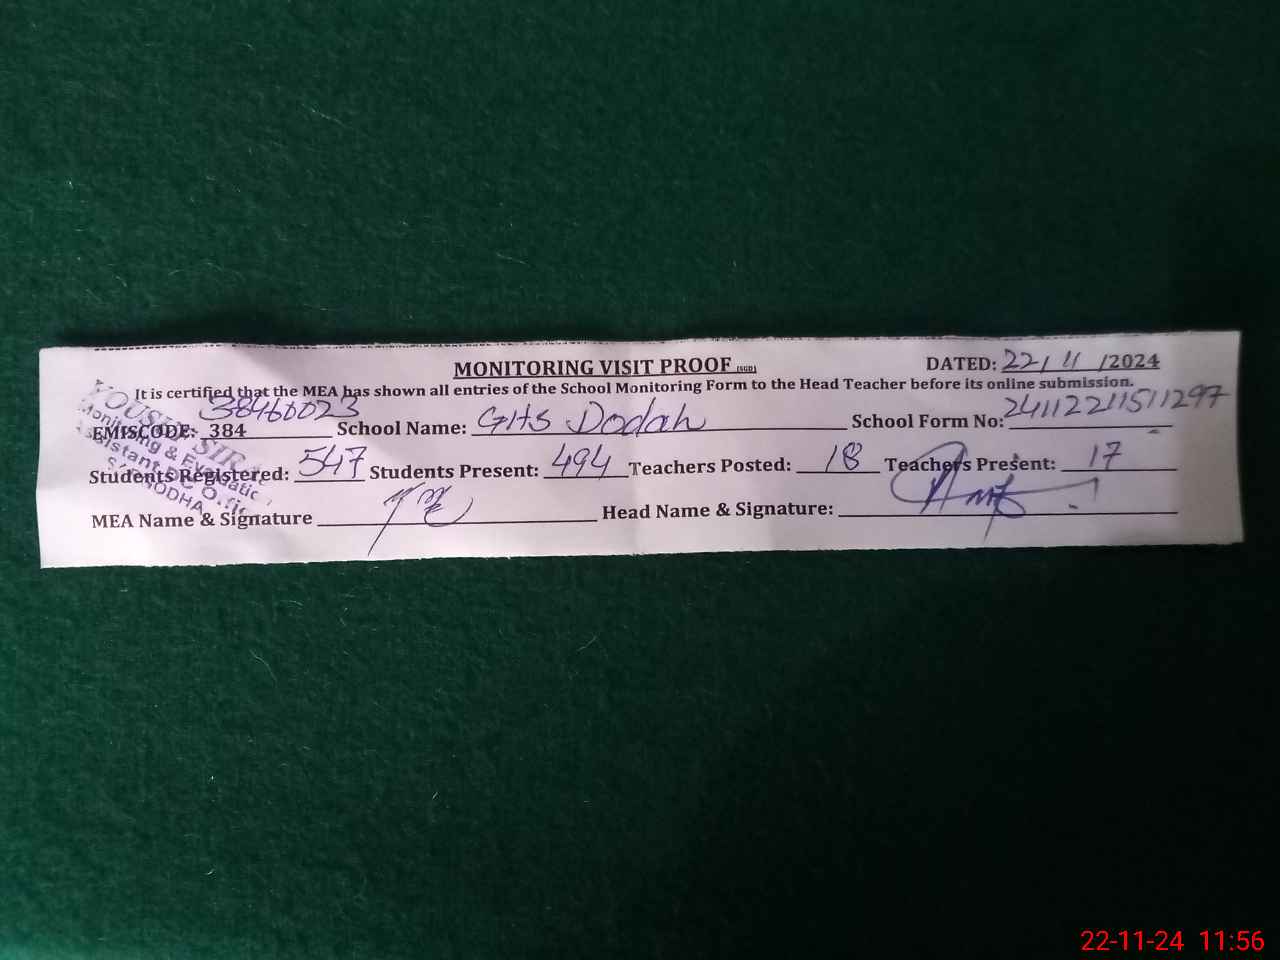 MONITORING VISIT PROOF (SGD) DATED: 22/11/2024
It is certified that the MEA has shown all entries of the School Monitoring Form to the Head Teacher before its online submission.
EMISCODE: 384 38460023 School Name: GHS Dodah School Form No: 24112211511297
Students Registered: 547 Students Present: 494 Teachers Posted: 18 Teachers Present: 17
MEA Name & Signature Head Name & Signature:
Monitoring & Evaluation
Assistant
SARGODHA
22-11-24 11:56